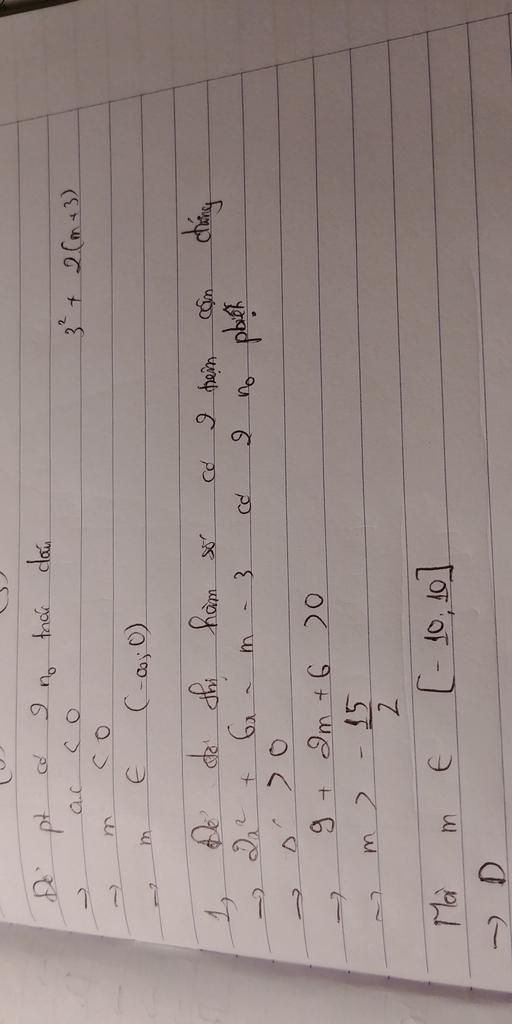 Để pt có 2 n₀ trái dấu
→ ac < 0
3² + 2(m+3)
→ m < 0
→ m ∈ (-∞; 0)
1, Để đồ thị hàm số có 2 tiệm cận đứng
→ 2x² + 6x - m - 3 có 2 n₀ pbiệt
→ Δ' > 0
→ 9 + 2m + 6 > 0
→ m > - 15/2
Mà m ∈ [-10; 10]
→ D